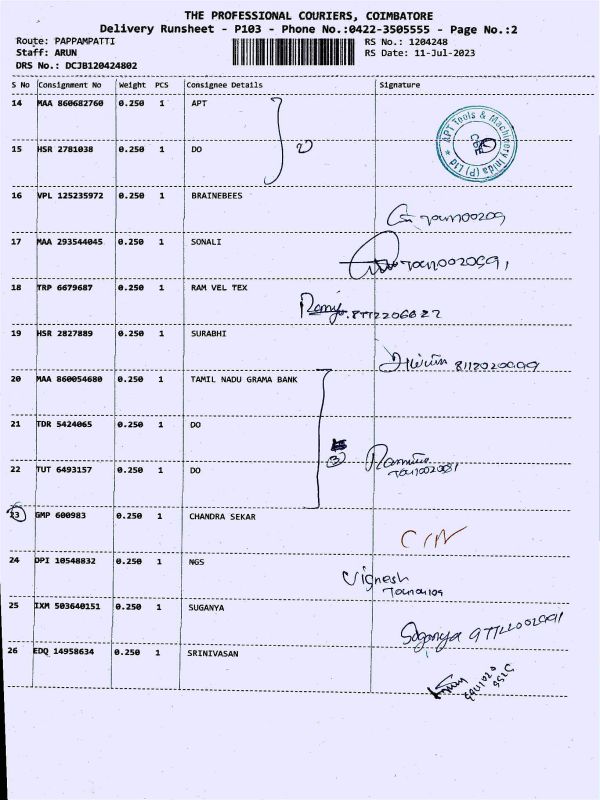 THE PROFESSIONAL COURIERS, COIMBATORE
Delivery Runsheet - P103 - Phone No.:0422-3505555 - Page No.:2
Route: PAPPAMPATTI RS No.: 1204248
Staff: ARUN RS Date: 11-Jul-2023
DRS No.: DCJB120424802
S No Consignment No Weight PCS Consignee Details Signature
14 MAA 860682760 0.250 1 APT
APT Tools & Machinery India (P) Ltd
15 HSR 2781038 0.250 1 DO
16 VPL 125235972 0.250 1 BRAINEBEES
17 MAA 293544045 0.250 1 SONALI
18 TRP 6679687 0.250 1 RAM VEL TEX
19 HSR 2827889 0.250 1 SURABHI
20 MAA 860054680 0.250 1 TAMIL NADU GRAMA BANK
21 TDR 5424065 0.250 1 DO
3
22 TUT 6493157 0.250 1 DO
23 GMP 600983 0.250 1 CHANDRA SEKAR
24 DPI 10548832 0.250 1 NGS
Vignesh
25 IXM 503640151 0.250 1 SUGANYA
Suganya
26 EDQ 14958634 0.250 1 SRINIVASAN